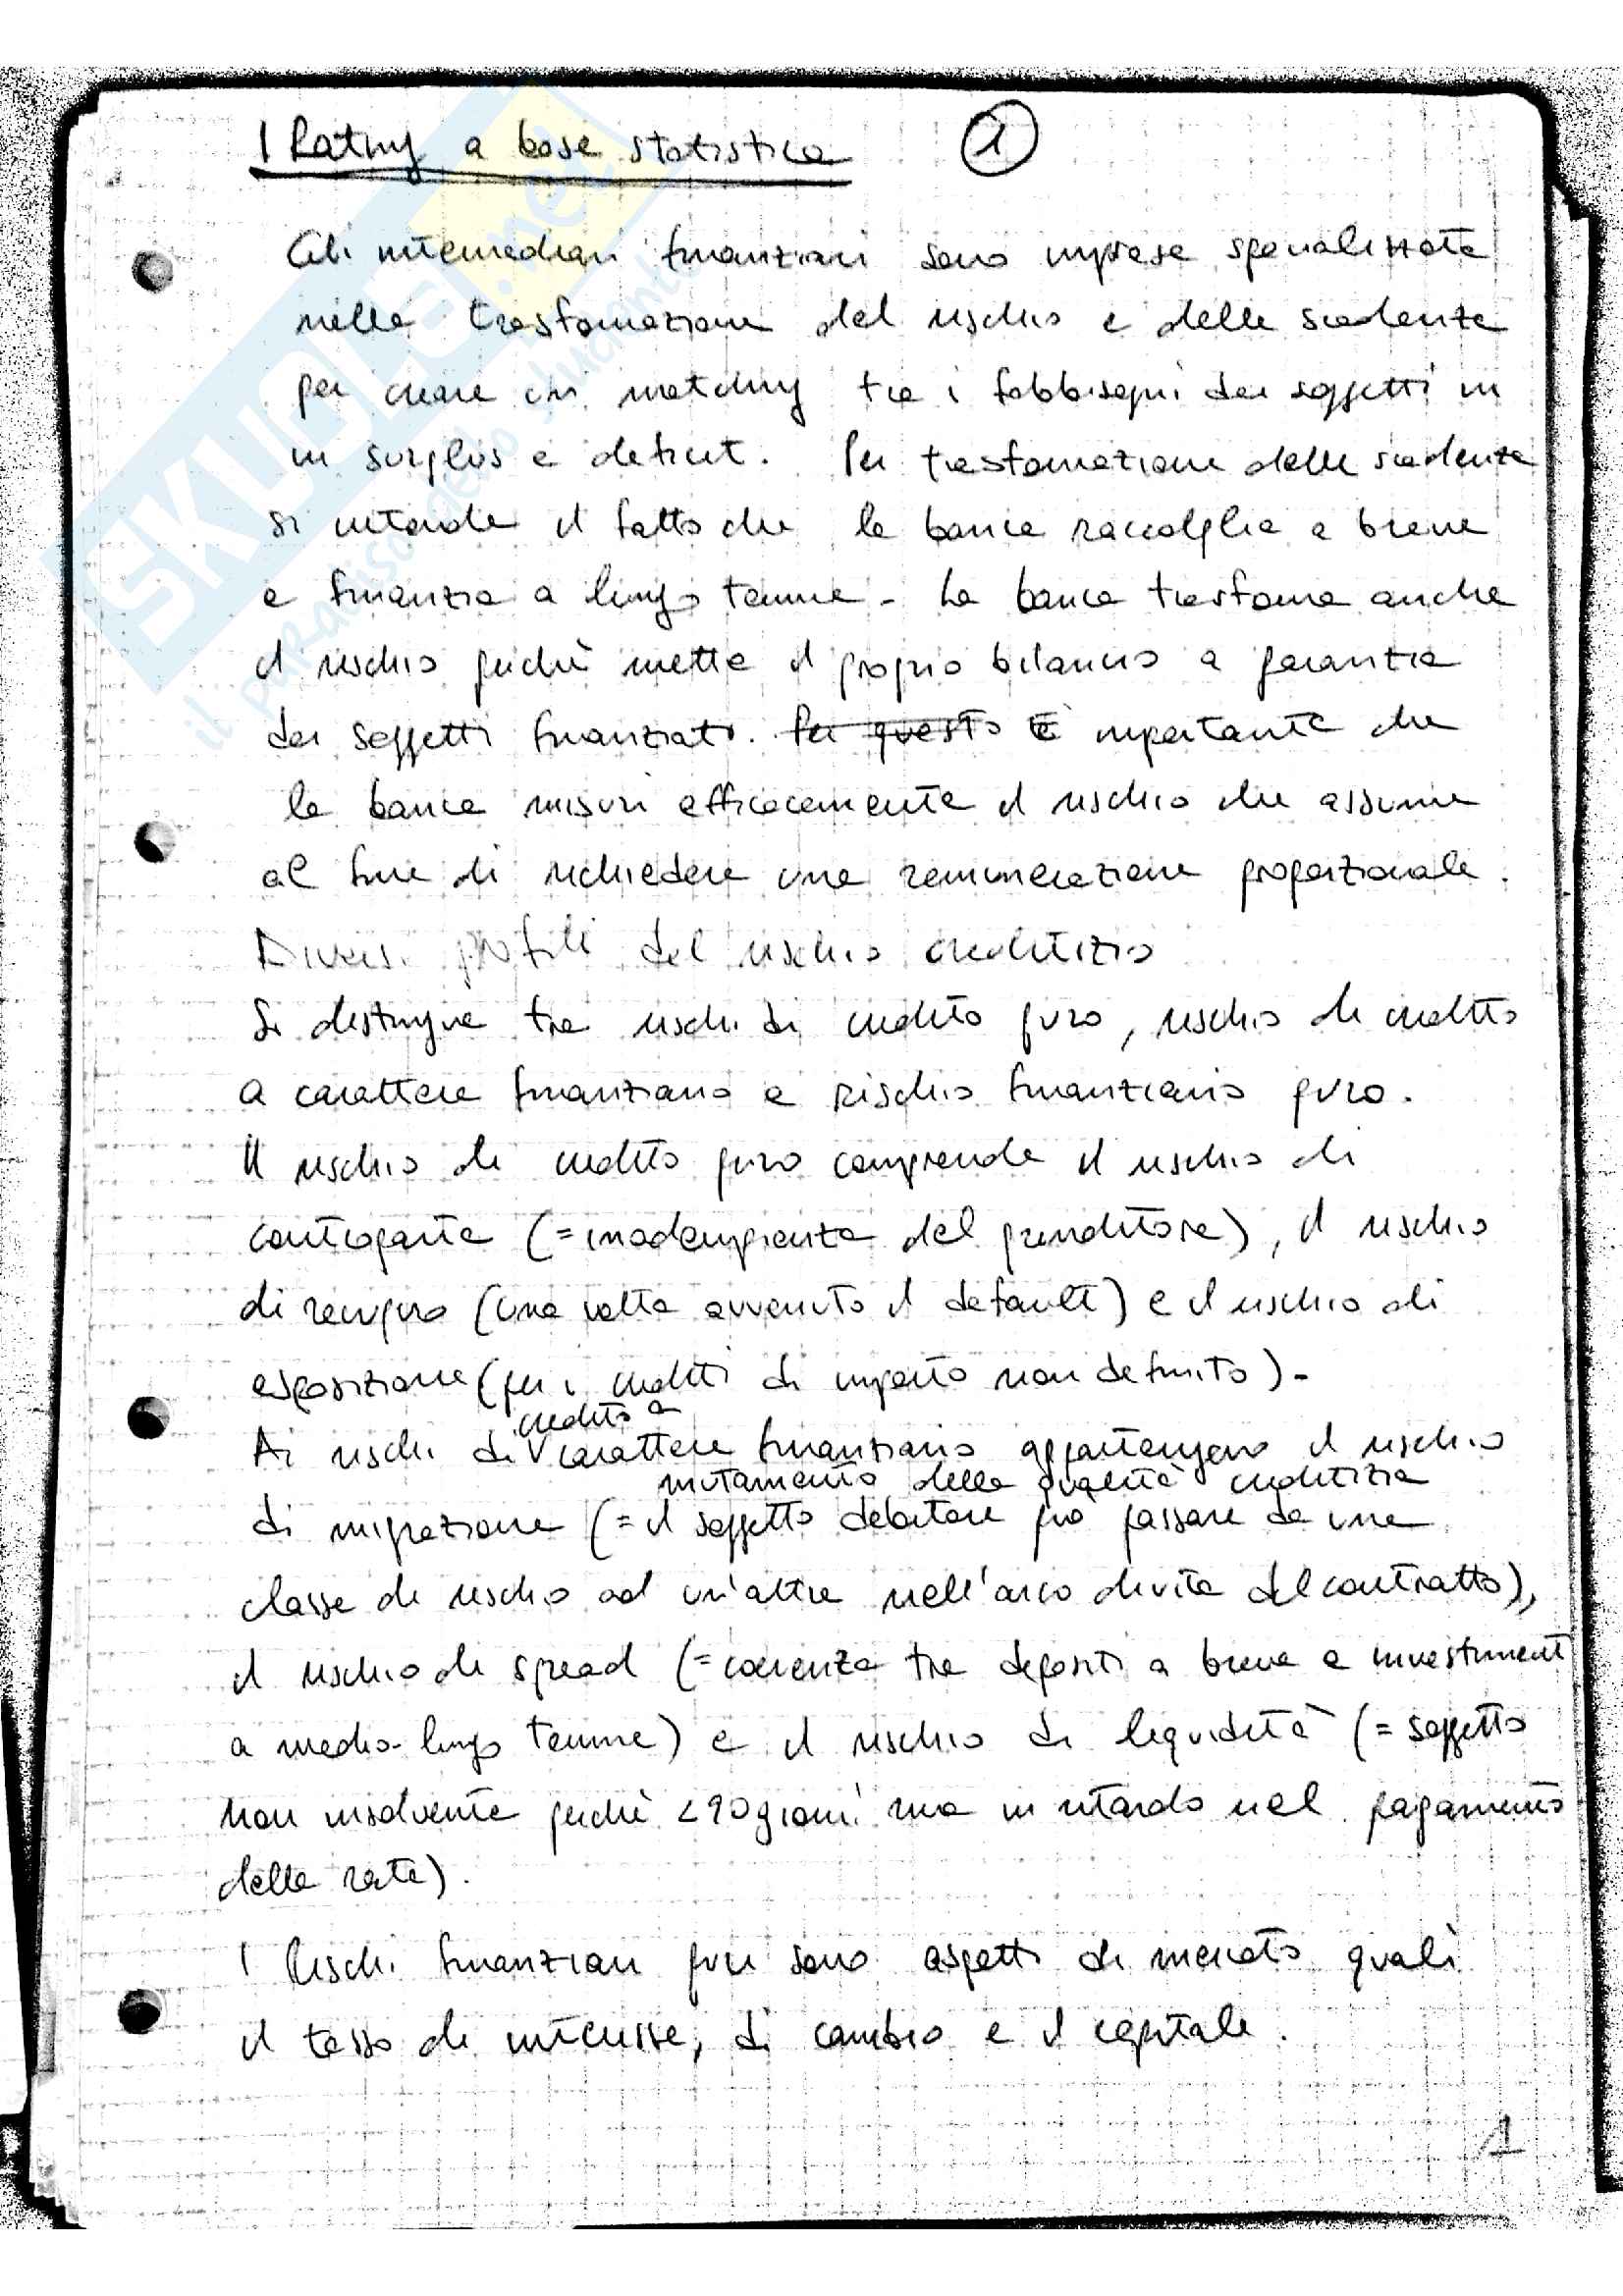 I Rating a base statistica ①
Gli intermediari finanziari sono imprese specializzate
nella trasformazione del rischio e delle scadenze
per creare un matching tra i fabbisogni dei soggetti in
in surplus e deficit. Per trasformazione delle scadenze
si intende il fatto che la banca raccolglie a breve
e finanzia a lungo termine. La banca trasforma anche
il rischio perchè mette il proprio bilancio a garanzia
dei soggetti finanziati. Per questo È importante che
la banca misuri efficacemente il rischio che assume
al fine di richiedere una remunerazione proporzionale.
Diversi profili del rischio creditizio
Si distingue tra rischi di credito puro, rischio di credito
a carattere finanziario e rischio finanziario puro.
Il rischio di credito puro comprende il rischio di
controparte (= inadempienza del prenditore), il rischio
di recupero (una volta avvenuto il default) e il rischio di
esposizione (per i crediti di importo non definito).
credito a
Ai rischi di carattere finanziario appartengono il rischio
mutamento della qualità creditizia
di migrazione (= il soggetto debitore può passare da una
classe di rischio ad un'altra nell'arco di vita del contratto),
il rischio di spread (= coerenza tra depositi a breve e investimenti
a medio-lungo termine) e il rischio di liquidità (= soggetto
non insolvente perchè <90 giorni ma in ritardo nel pagamento
delle rate).
I Rischi finanziari puri sono aspetti di mercato quali
il tasso di interesse, di cambio e il capitale.
1
SKUOLA.net
il paradiso dello studente